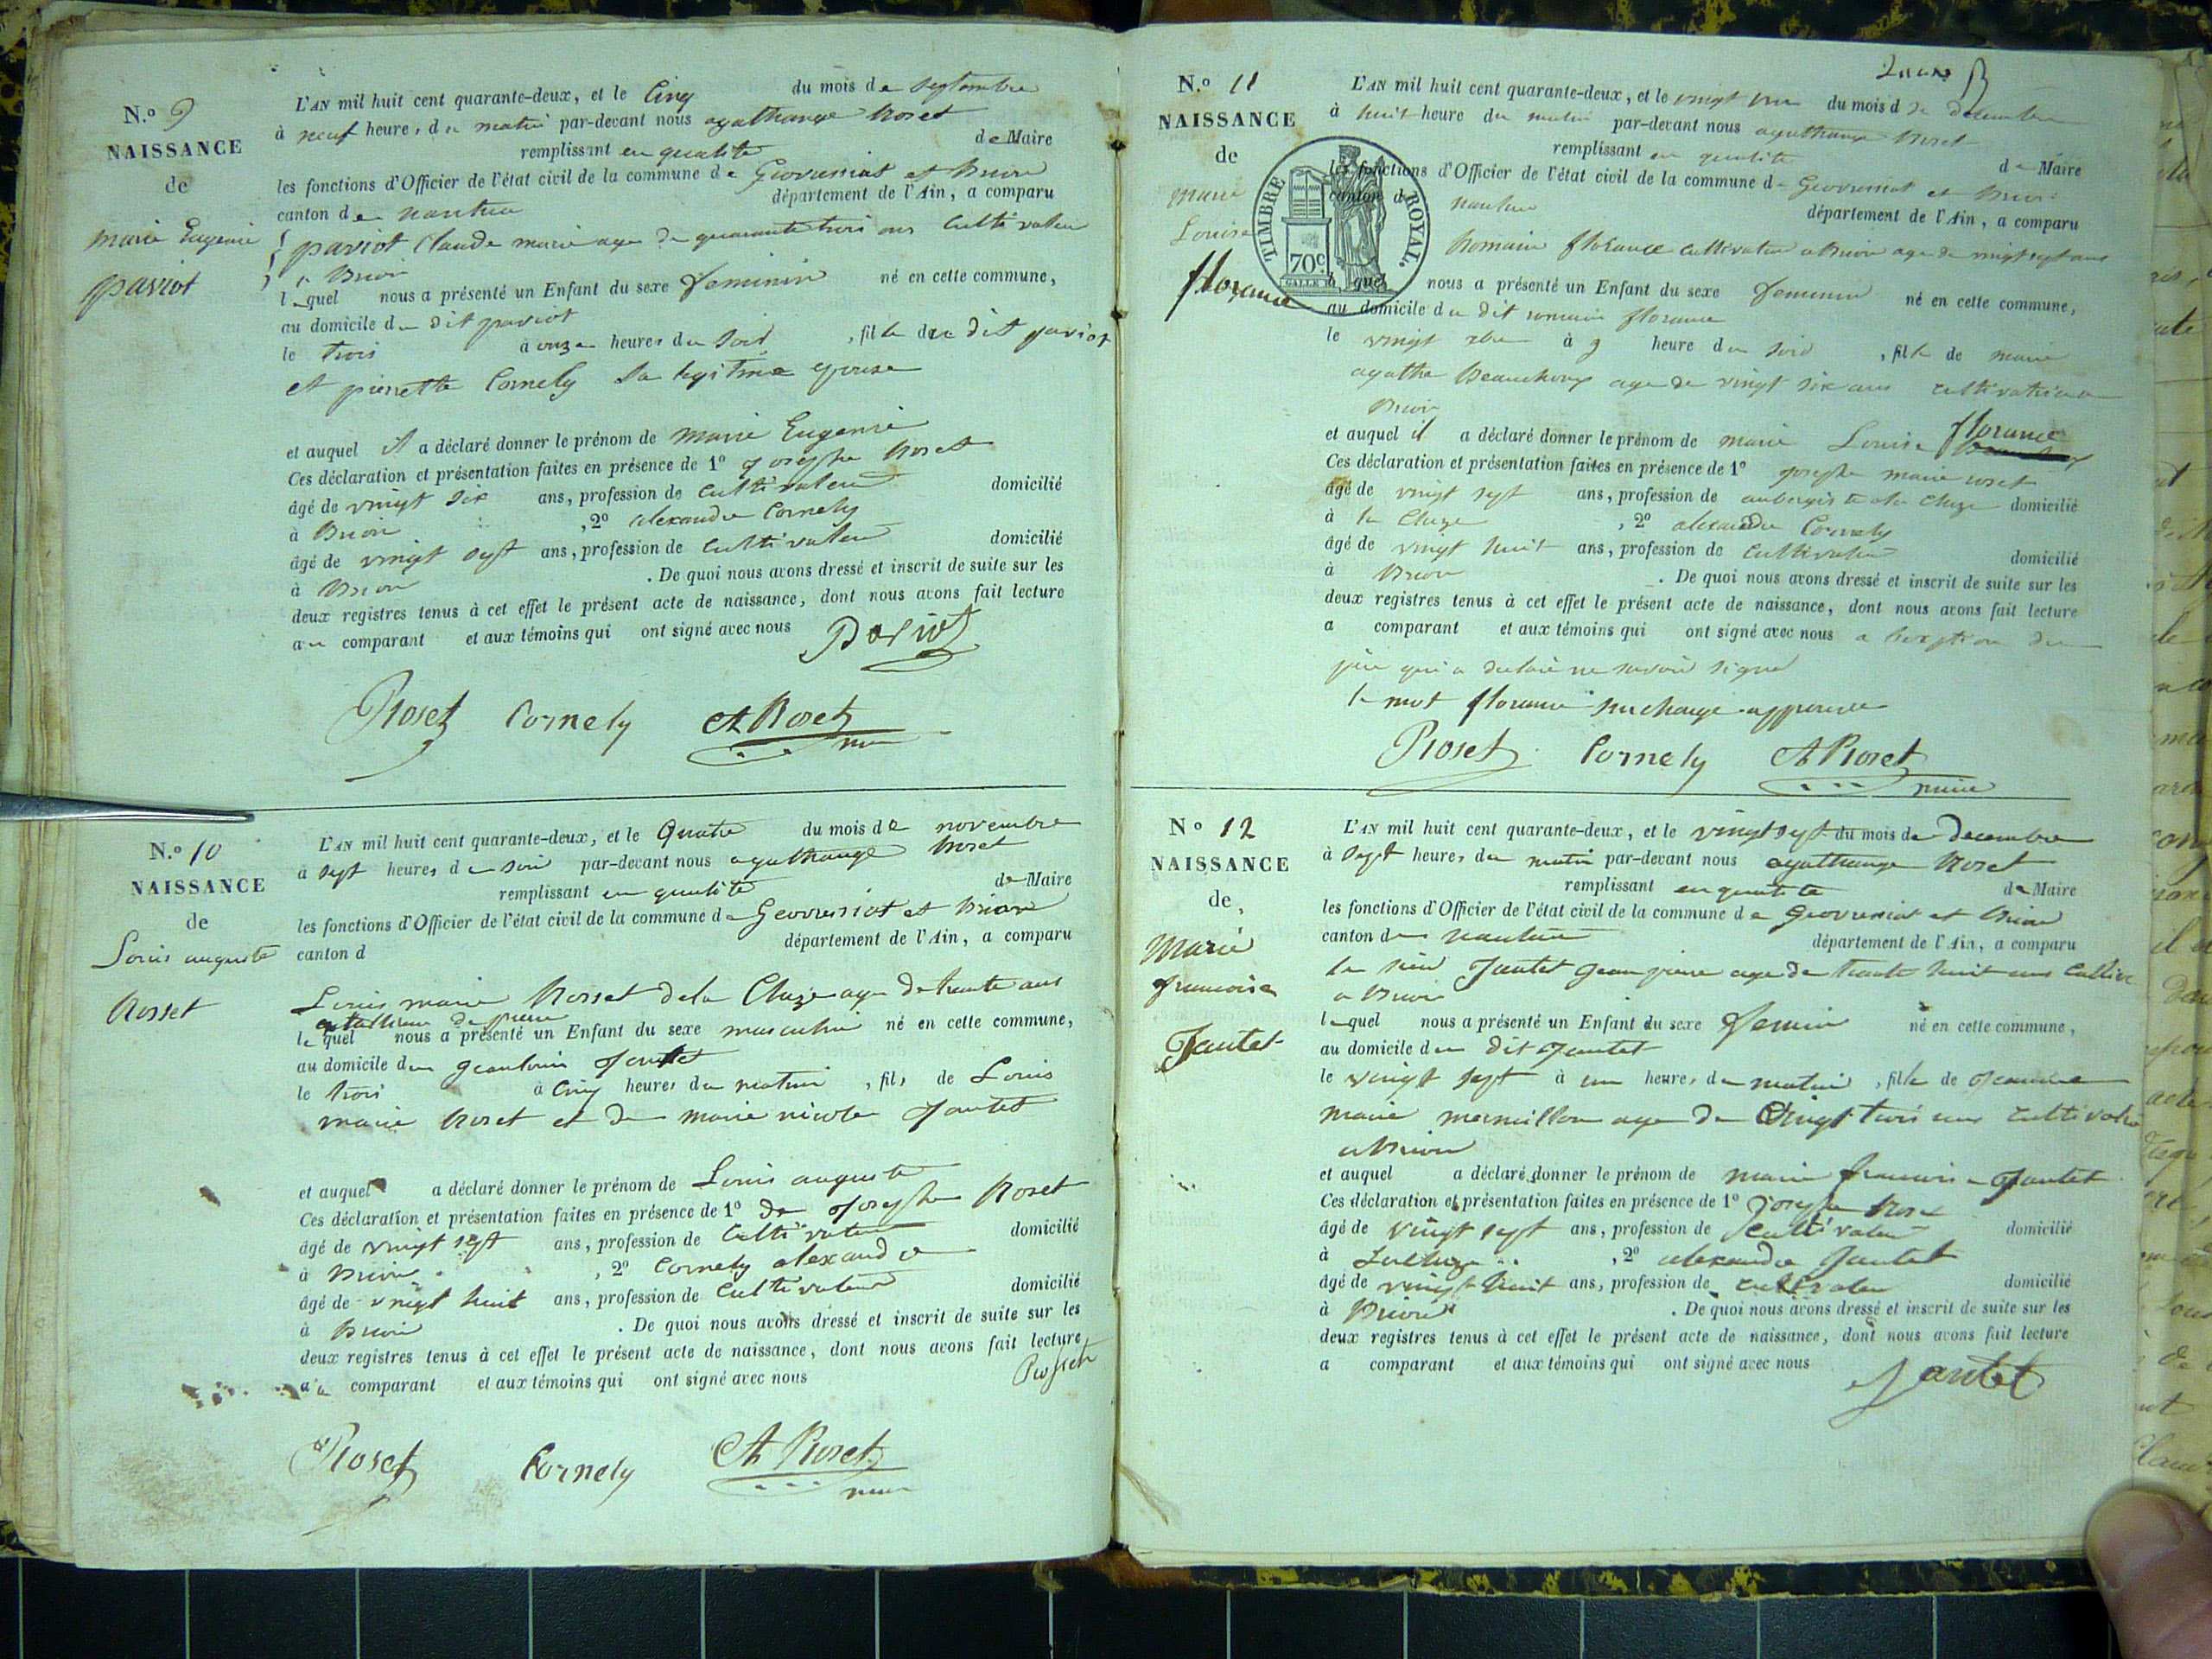 N.o 9
NAISSANCE
de
marie Eugenie
paviot
L'AN mil huit cent quarante-deux, et le Cinq du mois de Septembre
à neuf heures du matin par-devant nous agathange Roset
remplissant en qualité de Maire
les fonctions d'Officier de l'état civil de la commune de Geovressiat et Brion
canton de nantua département de l'Ain, a comparu
paviot Claude marie age de quarante trois ans Cultivateur
a Brion
lequel nous a présenté un Enfant du sexe feminin né en cette commune,
au domicile du dit paviot
le trois à onze heures du soir , fille du dit paviot
et pierrette Cornely sa legitime epouse
et auquel il a déclaré donner le prénom de marie Eugenie
Ces déclaration et présentation faites en présence de 1o josephe Roset
âgé de vingt six ans, profession de Cultivateur domicilié
à Brion , 2o alexandre Cornely
âgé de vingt sept ans, profession de Cultivateur domicilié
à Brion . De quoi nous avons dressé et inscrit de suite sur les
deux registres tenus à cet effet le présent acte de naissance, dont nous avons fait lecture
au comparant et aux témoins qui ont signé avec nous Paviot
Roset Cornely At Roset
N.o 10
NAISSANCE
de
Louis auguste
Rosset
L'AN mil huit cent quarante-deux, et le Quatre du mois de novembre
à sept heures du soir par-devant nous agathange Roset
remplissant en qualité de Maire
les fonctions d'Officier de l'état civil de la commune de Geovressiat et Brion
canton d département de l'Ain, a comparu
Louis marie Rosset dela Cluze age de trente ans
tailleur de pierre
lequel nous a présenté un Enfant du sexe masculin né en cette commune,
au domicile du jeantet
le trois à Cinq heures du matin , fils de Louis
marie Roset et de marie nicole Jantet
et auquel a déclaré donner le prénom de Louis auguste
Ces déclaration et présentation faites en présence de 1o De josephe Roset
âgé de vingt sept ans, profession de Cultivateur domicilié
à Brion , 2o Cornely alexandre
âgé de vingt huit ans, profession de Cultivateur domicilié
à Brion . De quoi nous avons dressé et inscrit de suite sur les
deux registres tenus à cet effet le présent acte de naissance, dont nous avons fait lecture
au comparant et aux témoins qui ont signé avec nous Rosset
Roset Cornely At Roset
N.o 11
NAISSANCE
de
marie
Louise
florance
TIMBRE ROYAL.
70c
L'AN mil huit cent quarante-deux, et le vingt un du mois de decembre
à huit heure du matin par-devant nous agathange Roset
remplissant en qualité de Maire
les fonctions d'Officier de l'état civil de la commune de Geovressiat et Brion
canton d nantua département de l'Ain, a comparu
Romain florance cultivateur a Brion age de vingt sept ans
lequel nous a présenté un Enfant du sexe feminin né en cette commune,
au domicile du dit romain florance
le vingt à 9 heure du soir , fille de marie
agathe age de vingt six ans cultivatrice a
Brion
et auquel il a déclaré donner le prénom de marie Louise florance
Ces déclaration et présentation faites en présence de 1o josephe marie roset
âgé de vingt sept ans, profession de aubergiste a la Cluze domicilié
à la Cluze , 2o alexandre Cornely
âgé de vingt huit ans, profession de Cultivateur domicilié
à Brion . De quoi nous avons dressé et inscrit de suite sur les
deux registres tenus à cet effet le présent acte de naissance, dont nous avons fait lecture
a comparant et aux témoins qui ont signé avec nous a du
père qui a declaré ne savoir signe
le mot florance surcharge approuve
Roset Cornely At Roset
maire
No 12
NAISSANCE
de
Marie
francoise
Jantet
L'AN mil huit cent quarante-deux, et le vingt sept du mois de decembre
à Sept heures du matin par-devant nous agathange Roset
remplissant en qualité de Maire
les fonctions d'Officier de l'état civil de la commune de Geovressiat et Brion
canton de nantua département de l'Ain, a comparu
le sieur Jantet jean pierre age de trente huit ans Cultiv
a Brion
lequel nous a présenté un Enfant du sexe femin né en cette commune,
au domicile du dit Jantet
le vingt sept à un heures du matin , fille de jeanne
marie mermillon age de Vingt trois ans cultivatri
a Brion
et auquel a déclaré donner le prénom de marie francoise Jantet
Ces déclaration et présentation faites en présence de 1o josephe Roset
âgé de vingt sept ans, profession de Cultivateur domicilié
à , 2o alexandre Jantet
âgé de vingt huit ans, profession de cultivateur domicilié
à Brion . De quoi nous avons dressé et inscrit de suite sur les
deux registres tenus à cet effet le présent acte de naissance, dont nous avons fait lecture
a comparant et aux témoins qui ont signé avec nous
Jantet